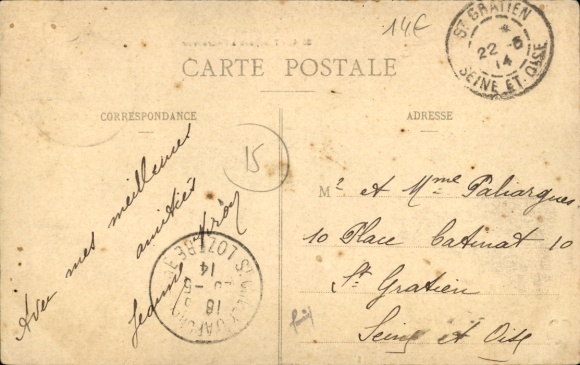 14€
CARTE POSTALE
CORRESPONDANCE
ADRESSE
ST GRATIEN
22 -5
14
SEINE-ET-OISE
15
Avec mes meilleures
amitiés
Jeanne
LOZÈRE
14
-5
18
Mr et Mme Paliargues
10 Place Catinat 10
St Gratien
Seine et Oise